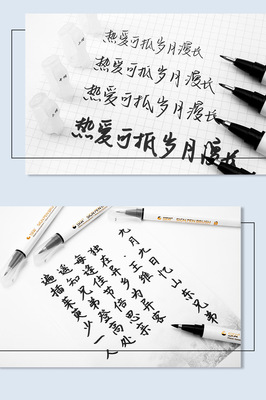 热爱可抵岁月漫长
热爱可抵岁月漫长
热爱可抵岁月漫长
热爱可抵岁月漫长
九月九日忆山东兄弟
·王维
独在异乡为异客
每逢佳节倍思亲
遥知兄弟登高处
遍插茱萸少一人